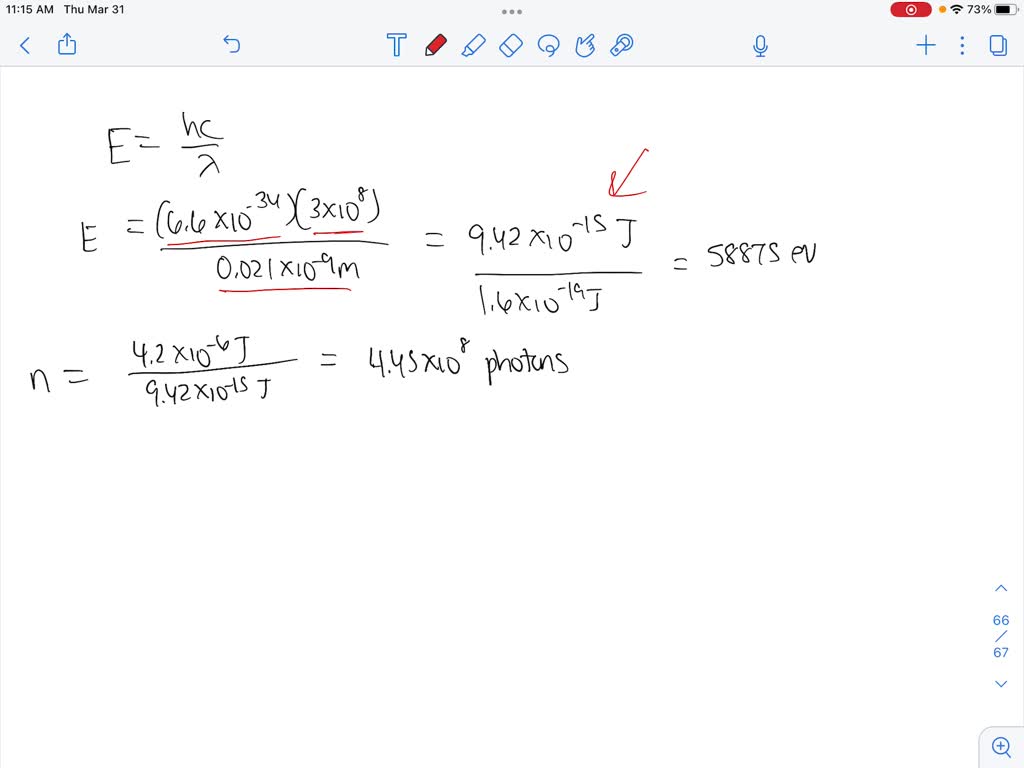 11:15 AM Thu Mar 31 73%
T
E = hc/λ
E = (6.6×10⁻³⁴)(3×10⁸)/0.021×10⁻⁹m = 9.42×10⁻¹⁵ J/1.6×10⁻¹⁹J = 58875 eV
n = 4.2×10⁻⁶J/9.42×10⁻¹⁵ J = 4.45×10⁸ photons
66
/
67